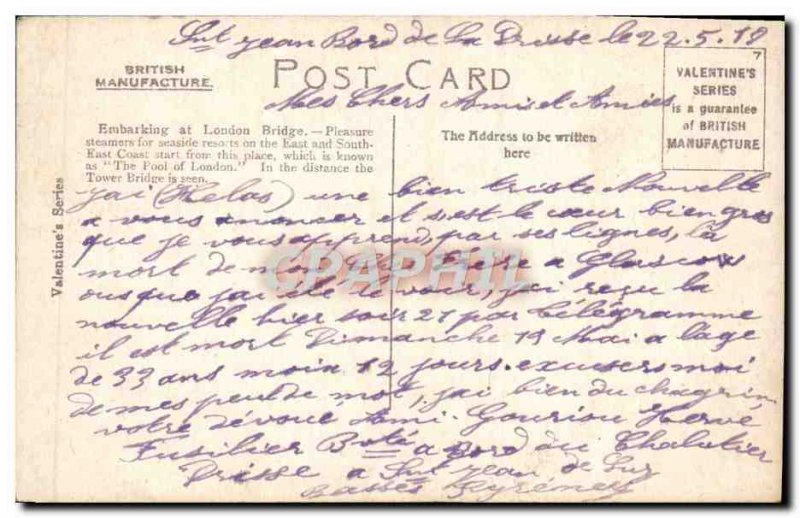 Snt Jean Bord de La Drisse le 22.5.18
BRITISH
MANUFACTURE.
POST CARD
7
VALENTINE'S
SERIES
is a guarantee
of BRITISH
MANUFACTURE
Mes Chers Amis et Amies
Embarking at London Bridge.—Pleasure
steamers for seaside resorts on the East and South-
East Coast start from this place, which is known
as "The Pool of London." In the distance the
Tower Bridge is seen.
The Address to be written
here
Valentine's Series
j'ai (Helas) une bien triste Nouvelle
a vous anoncer et s'est le cœur bien gros
que je vous apprend, par ses lignes, la
mort de mon Frere a Glascow
ousque j'ai été le voir, j'ai reçu la
nouvelle hier soir 21 par télégramme
il est mort Dimanche 19 Mai a l'age
de 33 ans moin 12 jours. excusers moi
de mes peu de mot, j'ai bien du chagrin,
votre dévoué Ami. Gouriou Hervé
Fusilier Bté a Bord du Chalutier
Drisse a Snt Jean de Luz
Basses Pyrénees
CPAPHIL